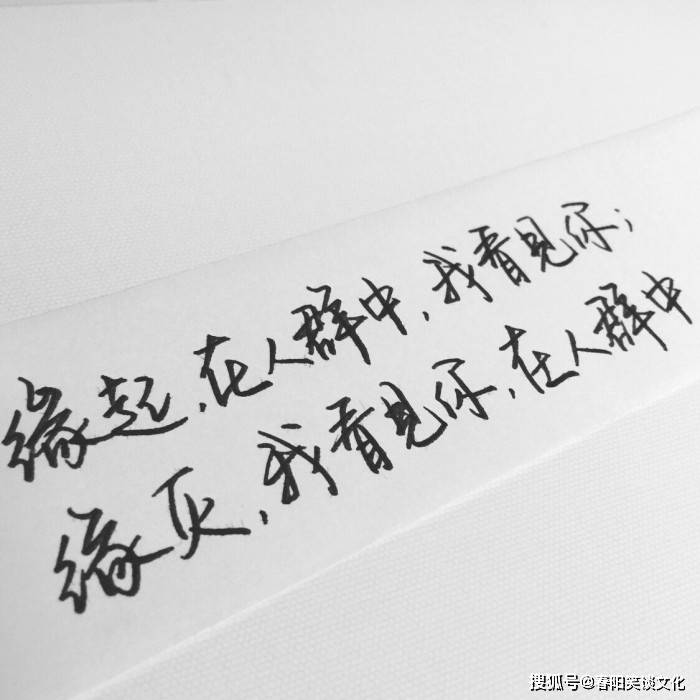 缘起,在人群中,我看见你;
缘灭,我看见你,在人群中
搜狐号@春阳笑谈文化